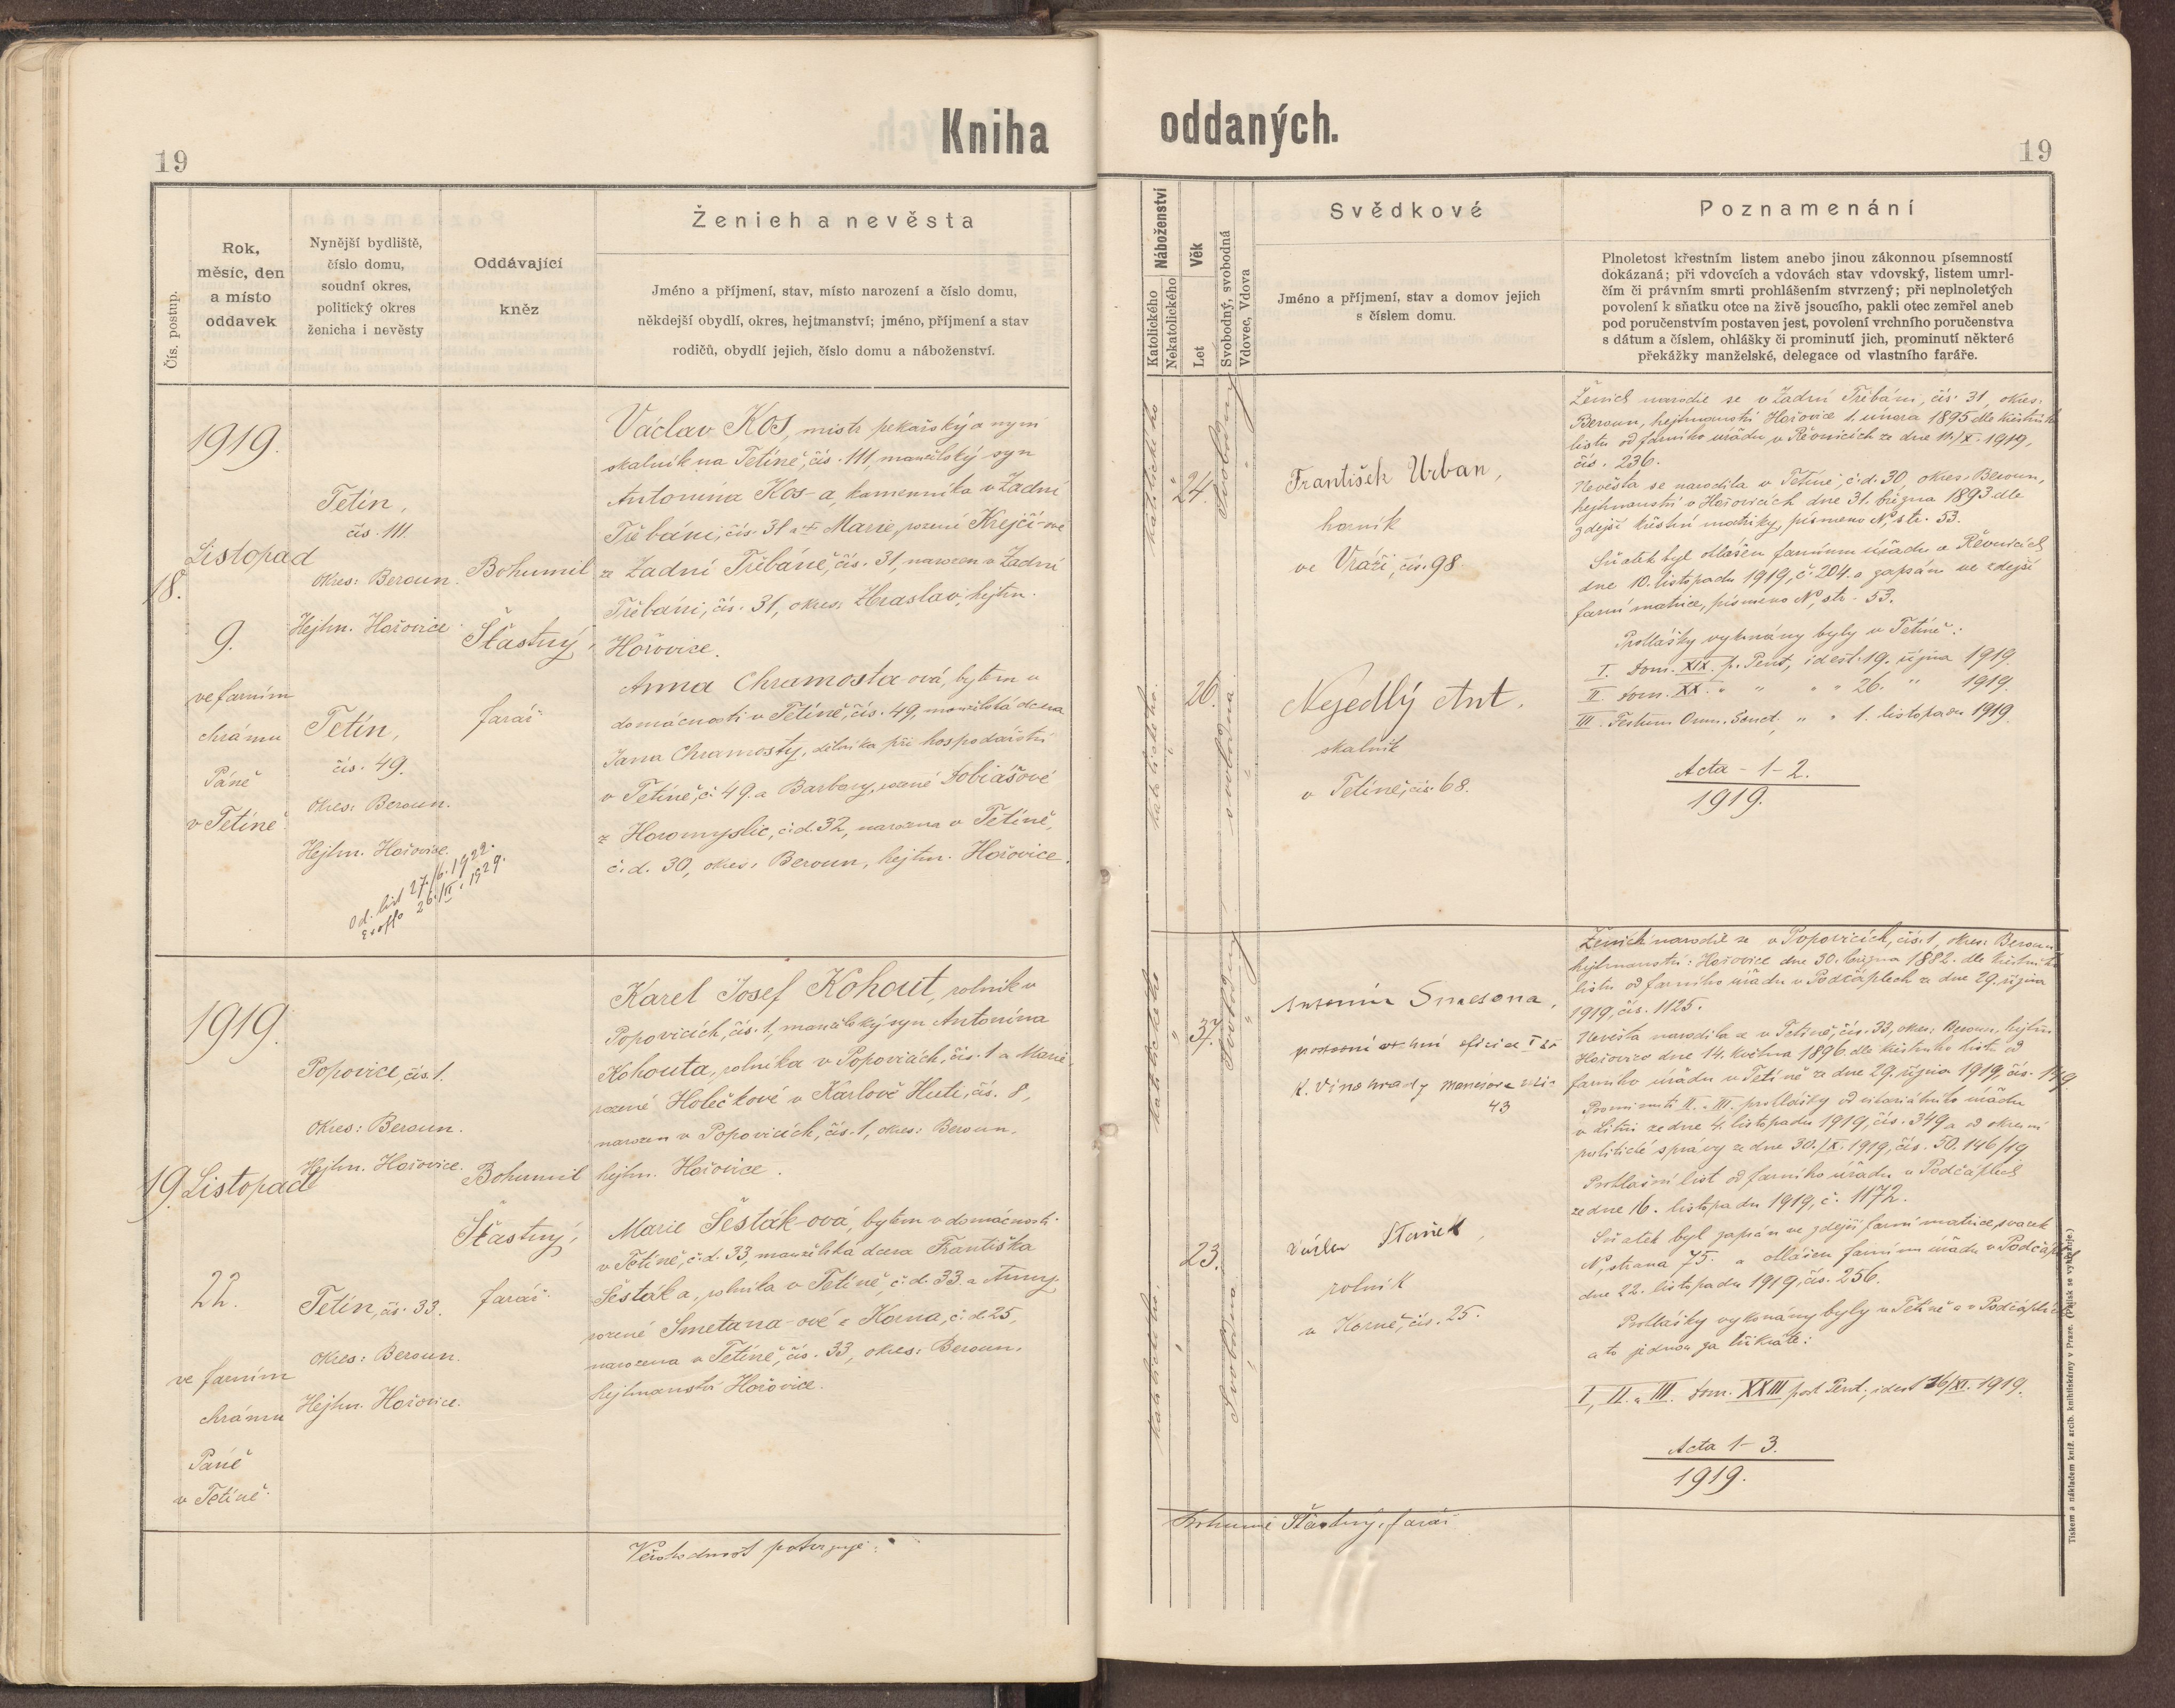 Kniha oddaných.
19
19
Čís. postup.
Rok,
měsíc, den
a místo
oddavek
Nynější bydliště,
číslo domu,
soudní okres,
politický okres
ženicha i nevěsty
Oddávající
kněz
Ženich a nevěsta
Jméno a příjmení, stav, místo narození a číslo domu,
někdejší obydlí, okres, hejtmanství; jméno, příjmení a stav
rodičů, obydlí jejich, číslo domu a náboženství.
Náboženství
Katolického
Nekatolického
Věk
Let
Svobodný, svobodná
Vdovec, Vdova
Svědkové
Jméno a příjmení, stav a domov jejich
s číslem domu.
Poznamenání
Plnoletost křestním listem anebo jinou zákonnou písemností
dokázaná; při vdovcích a vdovách stav vdovský, listem umrl-
čím či právním smrti prohlášením stvrzený; při neplnoletých
povolení k sňatku otce na živě jsoucího, pakli otec zemřel aneb
pod poručenstvím postaven jest, povolení vrchního poručenstva
s dátum a číslem, ohlášky či prominutí jich, prominutí některé
překážky manželské, delegace od vlastního faráře.
18.
1919.
Listopad
9.
ve farním
chrámu
Páně
v Tetíně.
Tetín,
čís. 111.
Okres: Beroun.
Hejtm. Hořovice.
Tetín,
čís. 49.
Okres: Beroun.
Hejtm. Hořovice.
Od. list 27./6. 1922.
Ex offo 26./II. 1929.
Bohumil
Šťastný,
farář.
Václav Kos, mistr pekařský a nyní
skalník na Tetíně, čís. 111, manželský syn
Antonína Kos-a, kamenníka v Zadní
Třebáni, čís. 31 a Marie, rozené Krejčí-ové
ze Zadní Třebáně, čís. 31, narozen v Zadní
Třebáni, čís. 31, okres: Zbraslav, hejtm.
Hořovice.
Anna Chramosta-ová, bytem v
domácnosti v Tetíně, čís. 49, manželská dcera
Jana Chramosty, dělníka při hospodářství
v Tetíně, č. 49. a Barbory, rozené Tobiášové
z Horomyslic, č.d. 32, narozena v Tetíně,
č.d. 30, okres: Beroun, hejtm. Hořovice.
katolického
"
24.
Svobodný
"
katolického.
"
26.
svobodná.
"
František Urban,
horník
ve Vráži, čís. 98.
Nejedlý Ant.
skalník
v Tetíně, čís. 68.
Ženich narodil se v Zadní Třebáni, čís. 31, okres:
Beroun, hejtmanství Hořovice 1. února 1895 dle křestního
listu od farního úřadu v Řevnicích ze dne 11./X. 1919,
čís. 236.
Nevěsta se narodila v Tetíně, č.d. 30, okres: Beroun,
hejtmanství v Hořovicích dne 31. března 1893 dle
zdejší křestní matriky, písmeno N, str. 53.
Sňatek byl ohlášen farnímu úřadu v Řevnicích
dne 10. listopadu 1919, č. 204. a zapsán ve zdejší
farní matrice, písmeno N, str. 53.
Prohlášky vykonány byly v Tetíně:
I. Dom. XIX. p. Pent., id est: 19. října 1919.
II. Dom. XX. " " " " 26. " 1919.
III. Festum Omn. Sanct. " " 1. listopadu 1919.
Acta - 1-2.
1919.
19.
1919.
Listopad
22.
ve farním
chrámu
Páně
v Tetíně.
Popovice, čís. 1.
Okres: Beroun.
Hejtm. Hořovice.
Tetín, čís. 33.
Okres: Beroun.
Hejtm. Hořovice.
Bohumil
Šťastný,
farář.
Karel Josef Kohout, rolník v
Popovicích, čís. 1, manželský syn Antonína
Kohouta, rolníka v Popovicích, čís. 1 a Marie,
rozené Holečkové v Karlově Huti, čís. 8,
narozen v Popovicích, čís. 1, okres: Beroun,
hejtm. Hořovice.
Marie Šesták-ová, bytem v domácnosti
v Tetíně, č.d. 33, manželská dcera Františka
Šestáka, rolníka v Tetíně, č.d. 33. a Anny,
rozené Smetana-ové z Korna, č.d. 25,
narozena v Tetíně, čís. 33, okres: Beroun.
hejtmanství Hořovice.
katolického
"
37.
Svobodný
"
katolického.
"
23.
Svobodná
"
Antonín
K. Vinohrady
43
Václav Staněk,
rolník
v Korně, čís. 25.
Ženich narodil se v Popovicích, čís. 1, okres: Beroun,
hejtmanství: Hořovice dne 30. března 1882. dle křestního
listu od farního úřadu v Počáplech ze dne 29. října
1919, čís. 1125.
Nevěsta narodila se v Tetíně, čís. 33, okres: Beroun, hejtm.
Hořovice dne 14. května 1896. dle křestního listu od
farního úřadu v Tetíně ze dne 29. října 1919, čís. 149.
Prominutí II. a III. prohlášky od vikariátního úřadu
v Litni ze dne 4. listopadu 1919, čís. 349 a od okresní
politické správy ze dne 30./X. 1919, čís. 50.146/19
Prohlašní list od farního úřadu v Počáplech
ze dne 16. listopadu 1919, č. 1172.
Sňatek byl zapsán ve zdejší farní matrice, svazek
N, strana 75. a ohlášen farnímu úřadu v Počáplech
dne 22. listopadu 1919, čís. 256.
Prohlášky vykonány byly v Tetíně a v Počáplech
a to jednou za třikráte:
I., II. a III. Dom. XXIII post Pent., id est 16/XI. 1919.
Acta 1-3.
1919.
Věrohodnost potvrzuje:
Bohumil Šťastný, farář
Tiskem a nákladem kníž. arcib. knihtiskárny v Praze. (Pajisk se vyhražuje.)